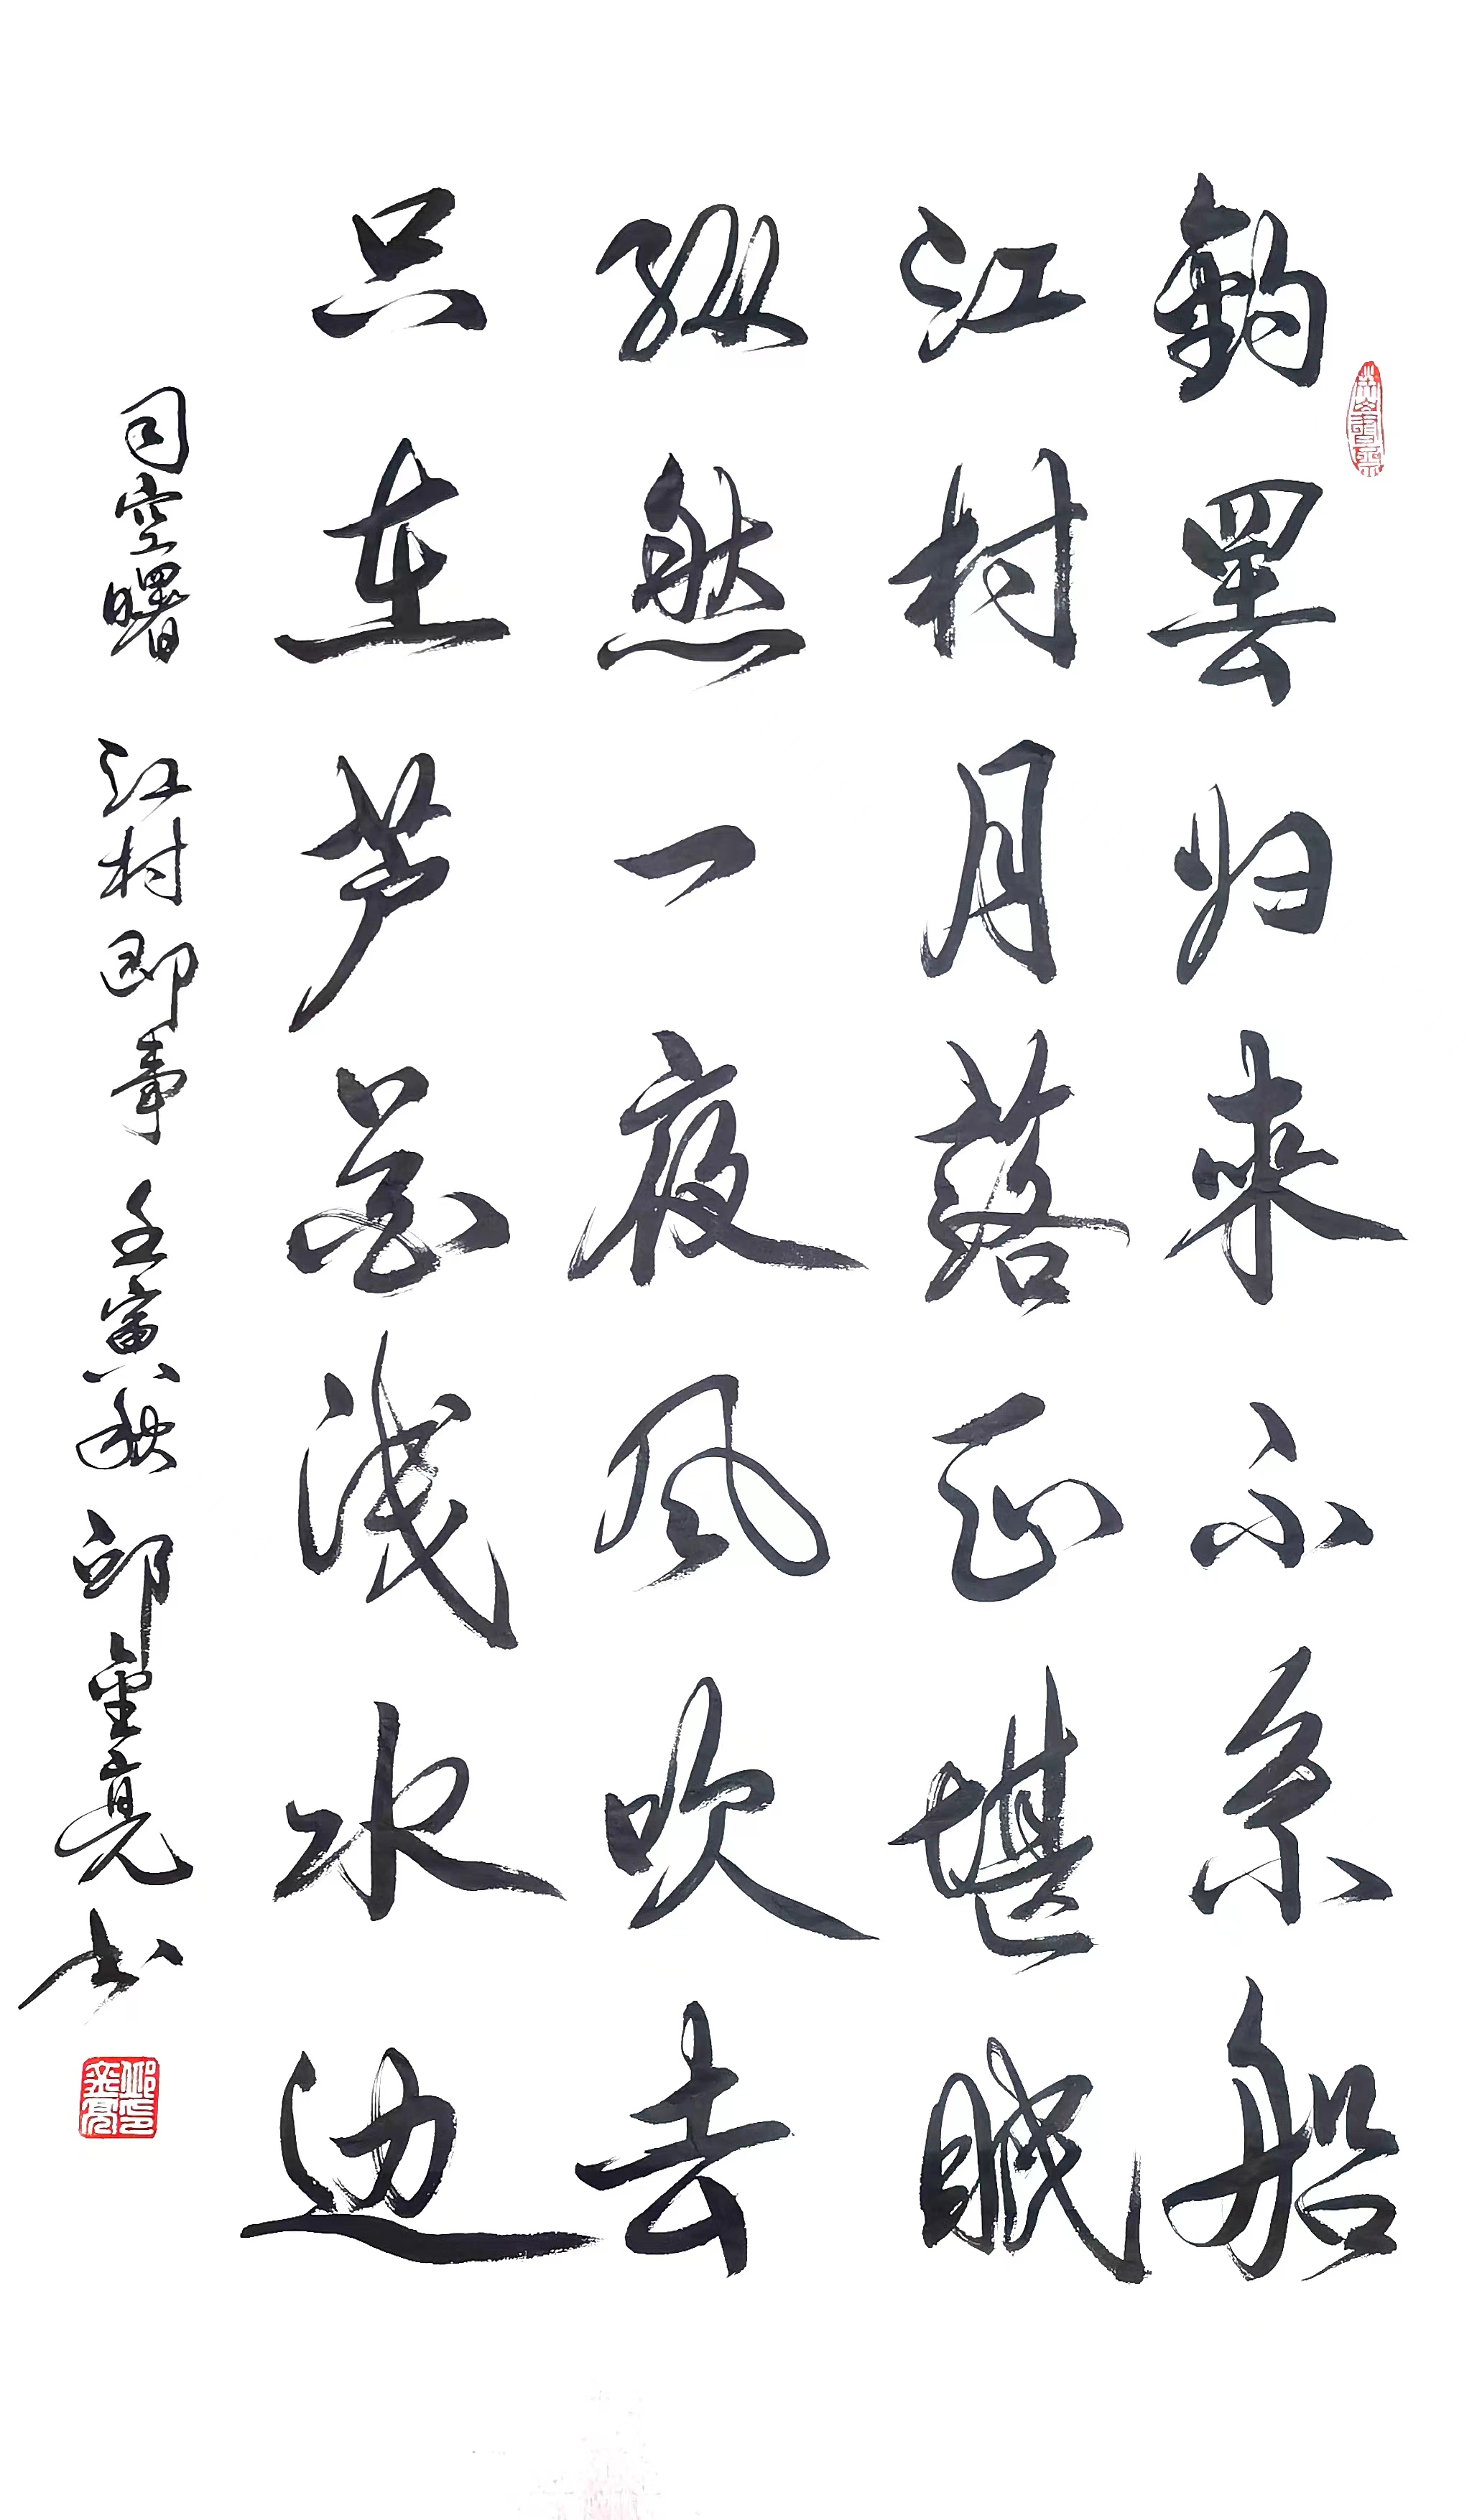 钓罢归来不系船
江村月落正堪眠
纵然一夜风吹去
只在芦花浅水边
司空曙 江村即事 壬寅秋 邱金亮书
邱金亮印